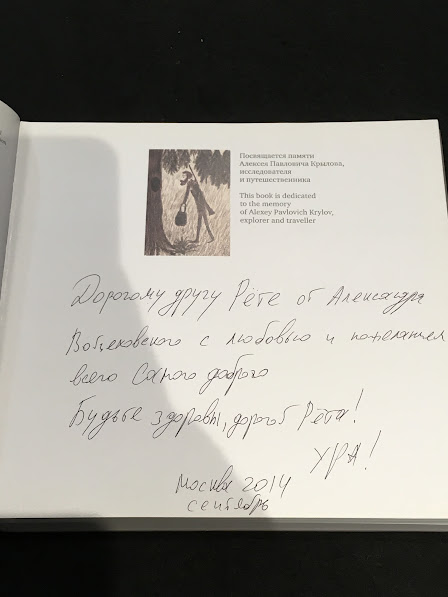 Посвящается памяти
Алексея Павловича Крылова,
исследователя
и путешественника
This book is dedicated
to the memory
of Alexey Pavlovich Krylov,
explorer and traveller
Дорогому другу Рёте от Александра
Войцеховского с любовью и пожеланием
всего самого доброго
Будьте здоровы, дорогой Рёта!
УРА!
Москва 2014
сентябрь